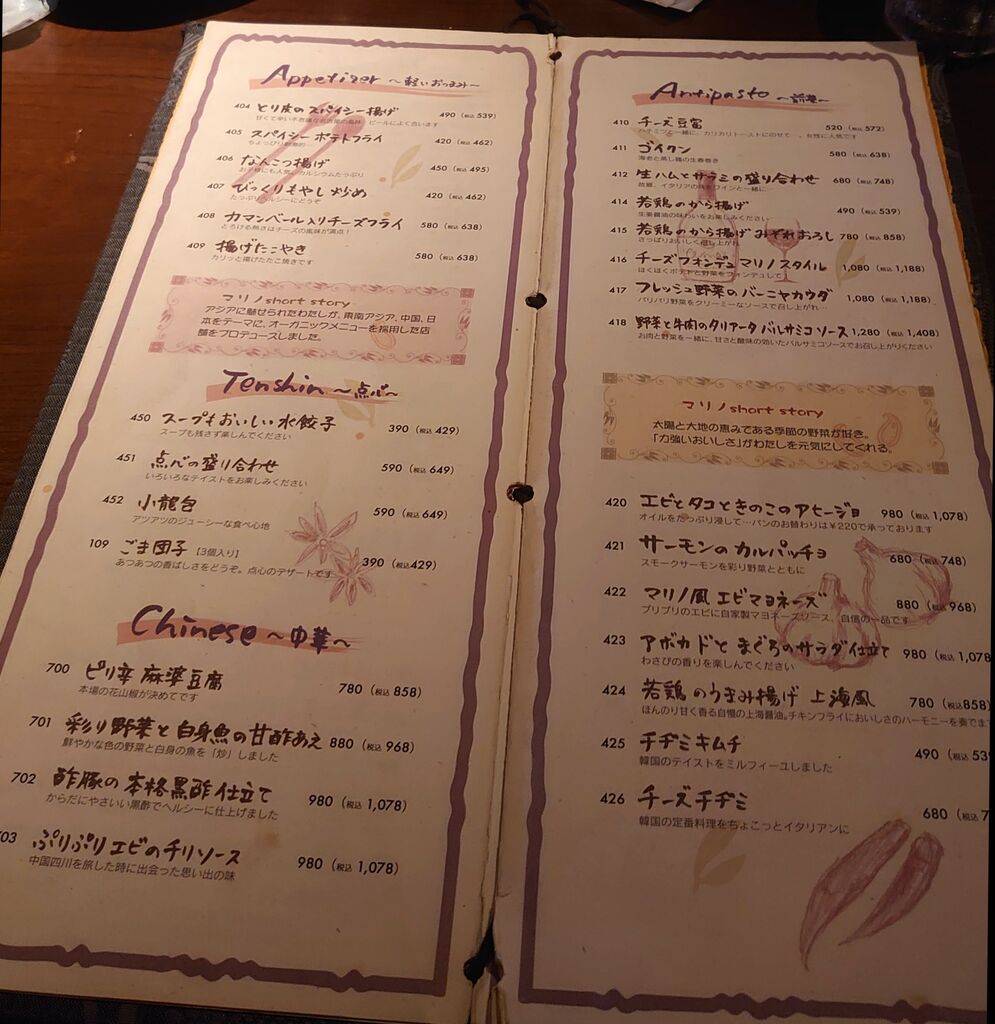 Appetizer ～軽いおつまみ～
404 とり皮のスパイシー揚げ 490 (税込 539)
甘くて辛い不思議な名古屋の風味、ビールによく合います
405 スパイシーポテトフライ 420 (税込 462)
ちょっぴり刺激的
406 なんこつ揚げ 450 (税込 495)
お子様にも人気。カルシウムたっぷり
407 びっくりもやし炒め 420 (税込 462)
たっぷりヘルシーにどうぞ
408 カマンベール入りチーズフライ 580 (税込 638)
とろける熱さはチーズの風味が満点！
409 揚げたこやき 580 (税込 638)
カリッと揚げたたこ焼きです
マリノshort story
アジアに魅せられたわたしが、東南アジア、中国、日
本をテーマに、オーガニックメニューを採用した店
舗をプロデュースしました。
Tenshin ～点心～
450 スープもおいしい水餃子 390 (税込 429)
スープも残さず楽しんでください
451 点心の盛り合わせ 590 (税込 649)
いろいろなテイストをお楽しみください
452 小龍包 590 (税込 649)
アツアツのジューシーな食べ心地
109 ごま団子【3個入り】 390 (税込429)
あつあつの香ばしさをどうぞ。点心のデザートです
Chinese ～中華～
700 ピリ辛麻婆豆腐 780 (税込 858)
本場の花山椒が決めてです
701 彩り野菜と白身魚の甘酢あえ 880 (税込 968)
鮮やかな色の野菜と白身の魚を「炒」しました
702 酢豚の本格黒酢仕立て 980 (税込 1,078)
からだにやさいい黒酢でヘルシーに仕上げました
703 ぷりぷりエビのチリソース 980 (税込 1,078)
中国四川を旅した時に出会った思い出の味
Antipasto ～前菜～
410 チーズ豆富 520 (税込 572)
ハチミツと一緒に、カリカリトーストにのせて…。女性に人気です
411 ゴイクン 580 (税込 638)
海老と蒸し鶏の生春巻き
412 生ハムとサラミの盛り合わせ 680 (税込 748)
故郷、イタリアの味をワインと一緒に…
414 若鶏のから揚げ 490 (税込 539)
生姜醤油の味わいをお楽しみください
415 若鶏のから揚げみぞれおろし 780 (税込 858)
さっぱりおいしく召し上がれ
416 チーズフォンデュマリノスタイル 1,080 (税込 1,188)
ほくほくポテトと野菜をフォンデュして
417 フレッシュ野菜のバーニャカウダ 1,080 (税込 1,188)
パリパリ野菜をクリーミーなソースで召し上れ
418 野菜と牛肉のタリアータ バルサミコソース 1,280 (税込 1,408)
お肉と野菜を一緒に、甘さと酸味の効いたバルサミコソースでお召し上がりください
マリノshort story
太陽と大地の恵みである季節の野菜が好き。
「力強いおいしさ」がわたしを元気にしてくれる。
420 エビとタコときのこのアヒージョ 980 (税込 1,078)
オイルをたっぷり浸して…パンのお替わりは￥220で承っております
421 サーモンのカルパッチョ 680 (税込 748)
スモークサーモンを彩り野菜とともに
422 マリノ風エビマヨネーズ 880 (税込 968)
プリプリのエビに自家製マヨネーズソース、自信の一品です
423 アボカドとまぐろのサラダ仕立て 980 (税込 1,078
わさびの香りを楽しんでください
424 若鶏のうまみ揚げ 上海風 780 (税込858)
ほんのり甘く香る自慢の上海醤油。チキンフライにおいしさのハーモニーを奏でま
425 チヂミキムチ 490 (税込 53
韓国のテイストをミルフィーユしました
426 チーズチヂミ 680 (税込 7
韓国の定番料理をちょこっとイタリアンに